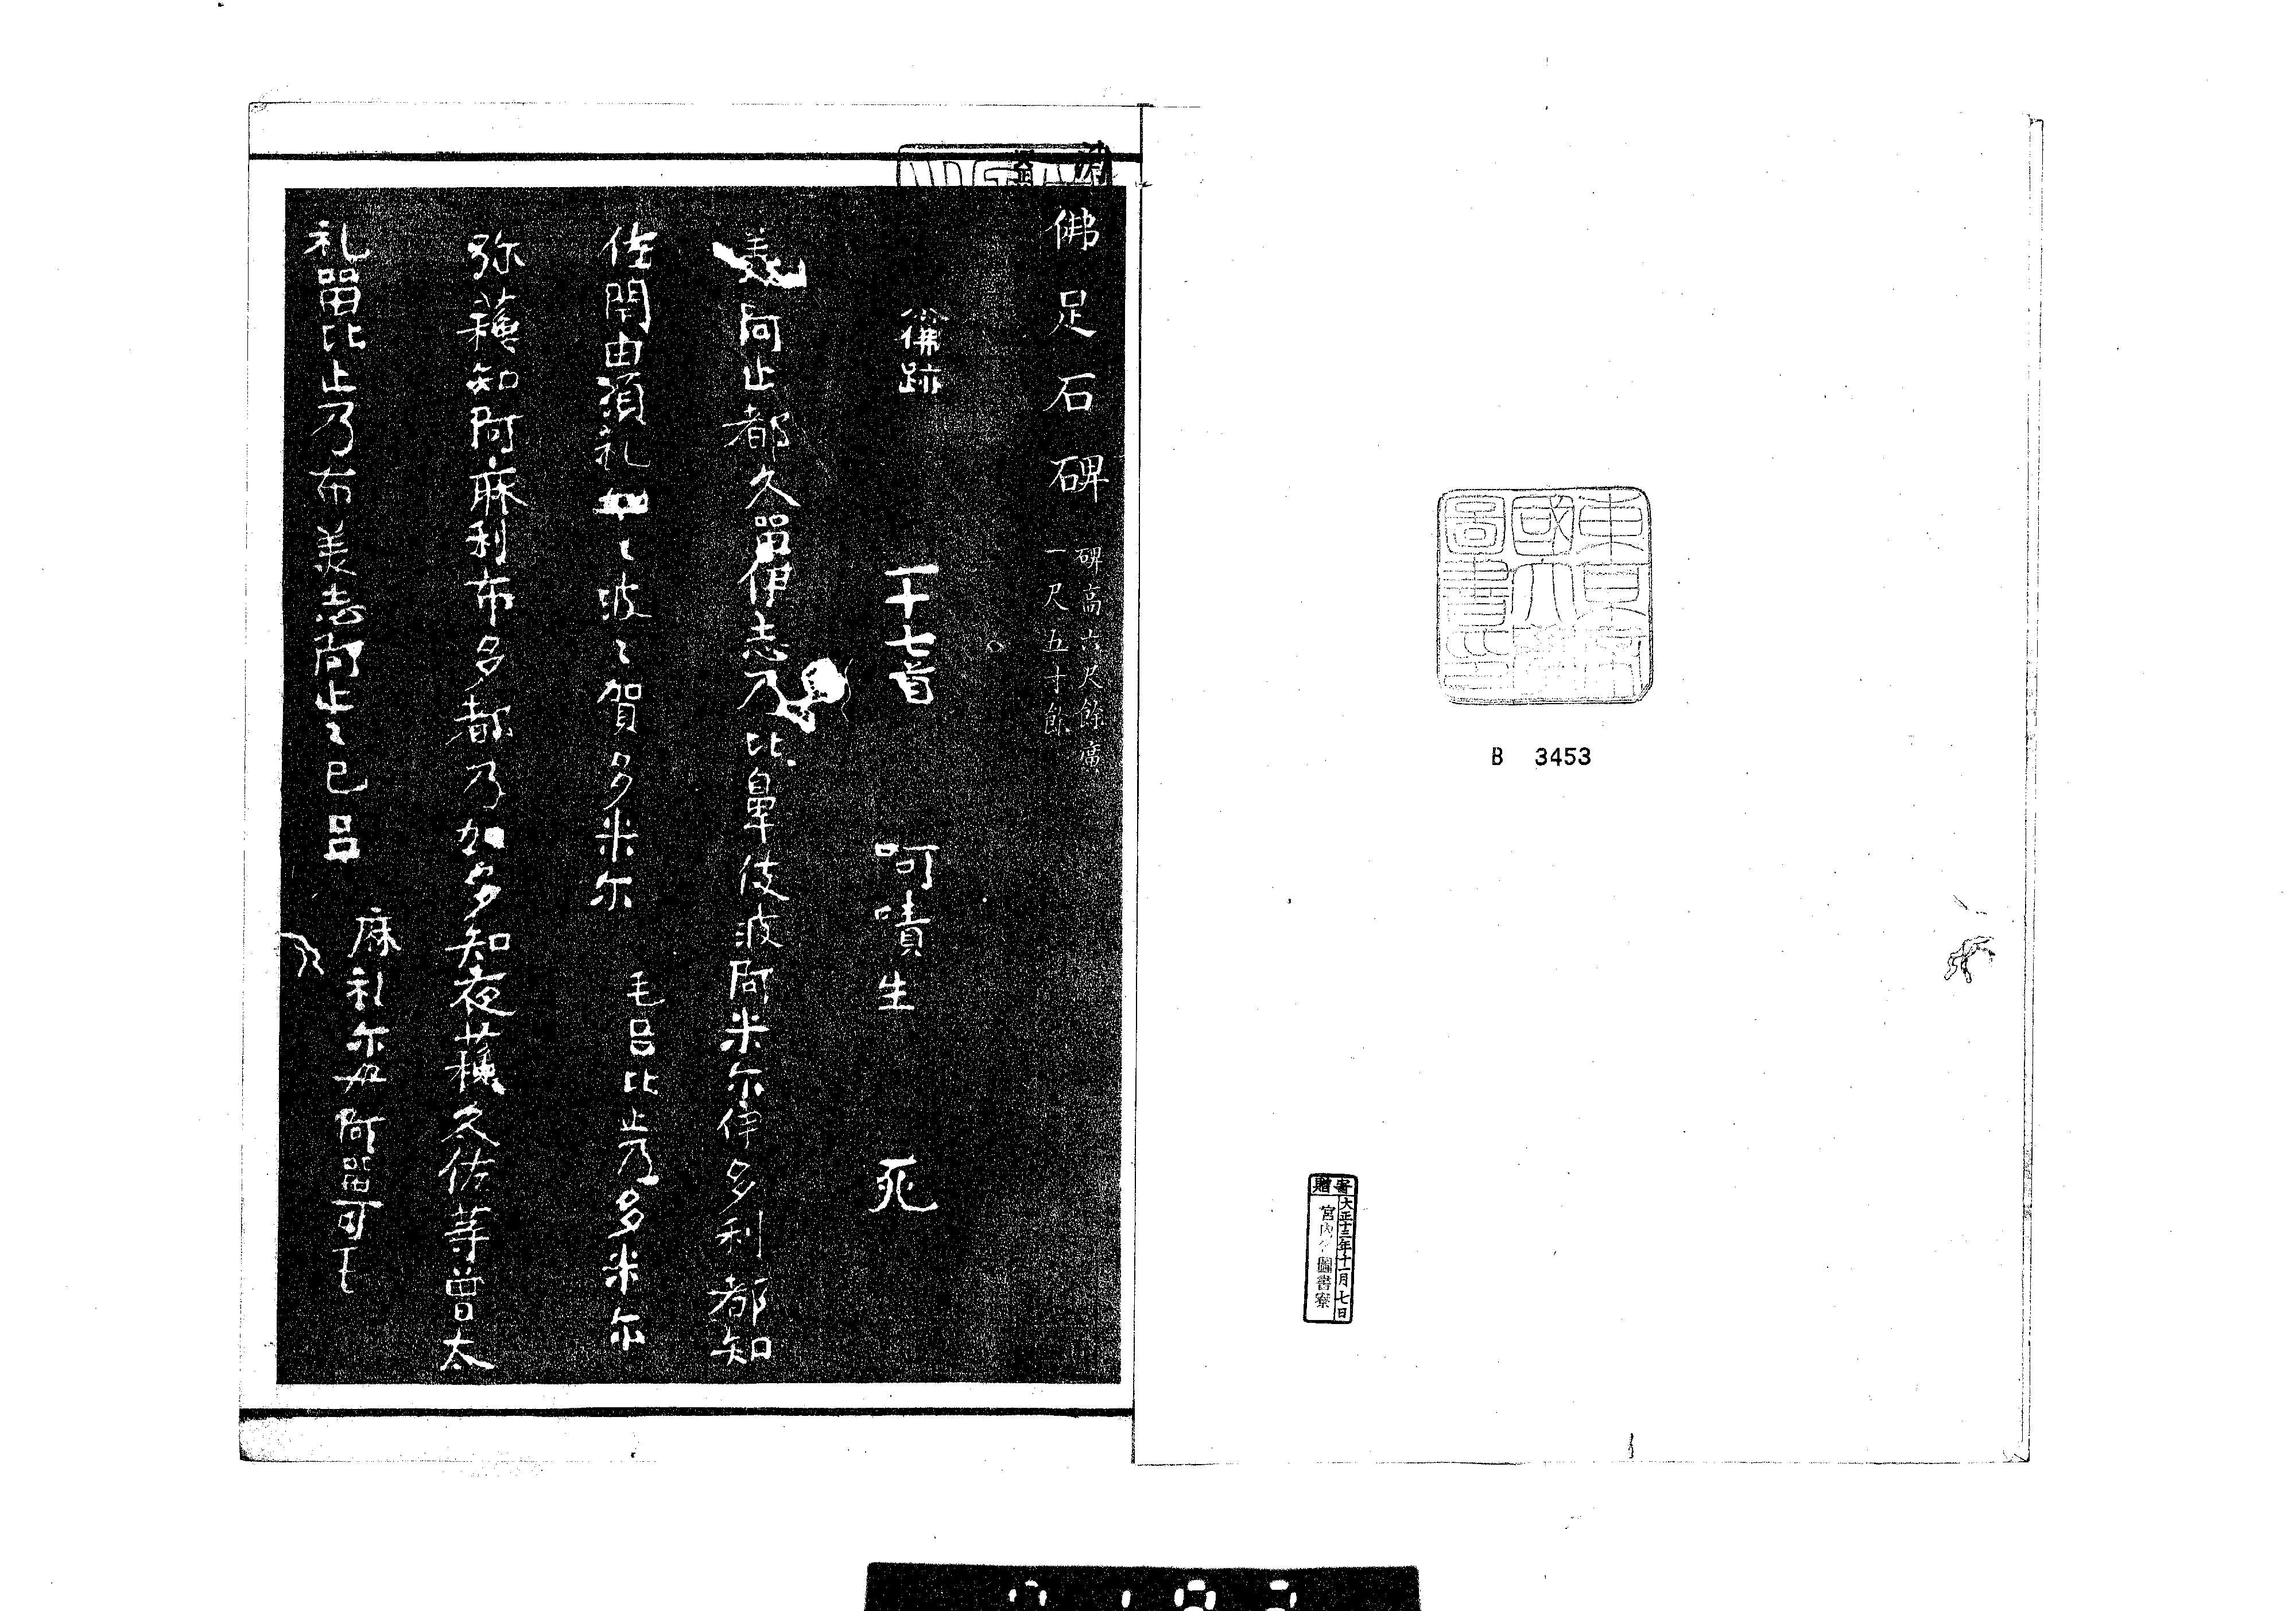 東京帝
國大學
圖書印
B 3453
寄贈
大正十三年十一月七日
宮内省圖書寮
佛足石碑
碑高六尺餘廣
一尺五寸餘
佛跡 一十七首 呵嘖生 死
美阿止都久留伊志乃比鼻伎波阿米尓伊多利都知
佐閇由須礼知々波々賀多米尓 毛呂比止乃多米尓
弥蘓知阿麻利布多都乃加多知夜蘓久佐等曽太
礼留比止乃布美志阿止々己呂 麻礼尓母阿留可毛